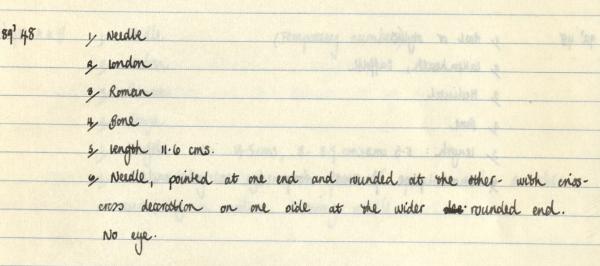 89' 48 1/ Needle
2/ London
3/ Roman
4/ Bone
5/ Length 11.6 cms.
6/ Needle, pointed at one end and rounded at the other - with criss-
cross decoration on one side at the wider rounded end.
No eye.